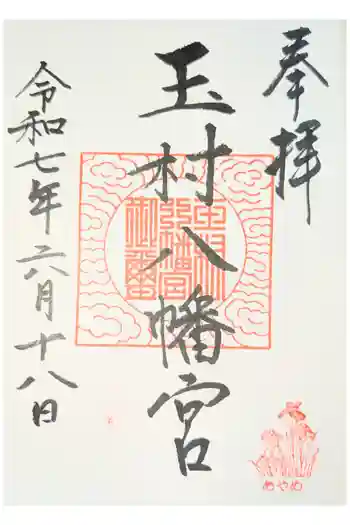 奉拝
玉村八幡宮
令和七年六月十八日
あやめ